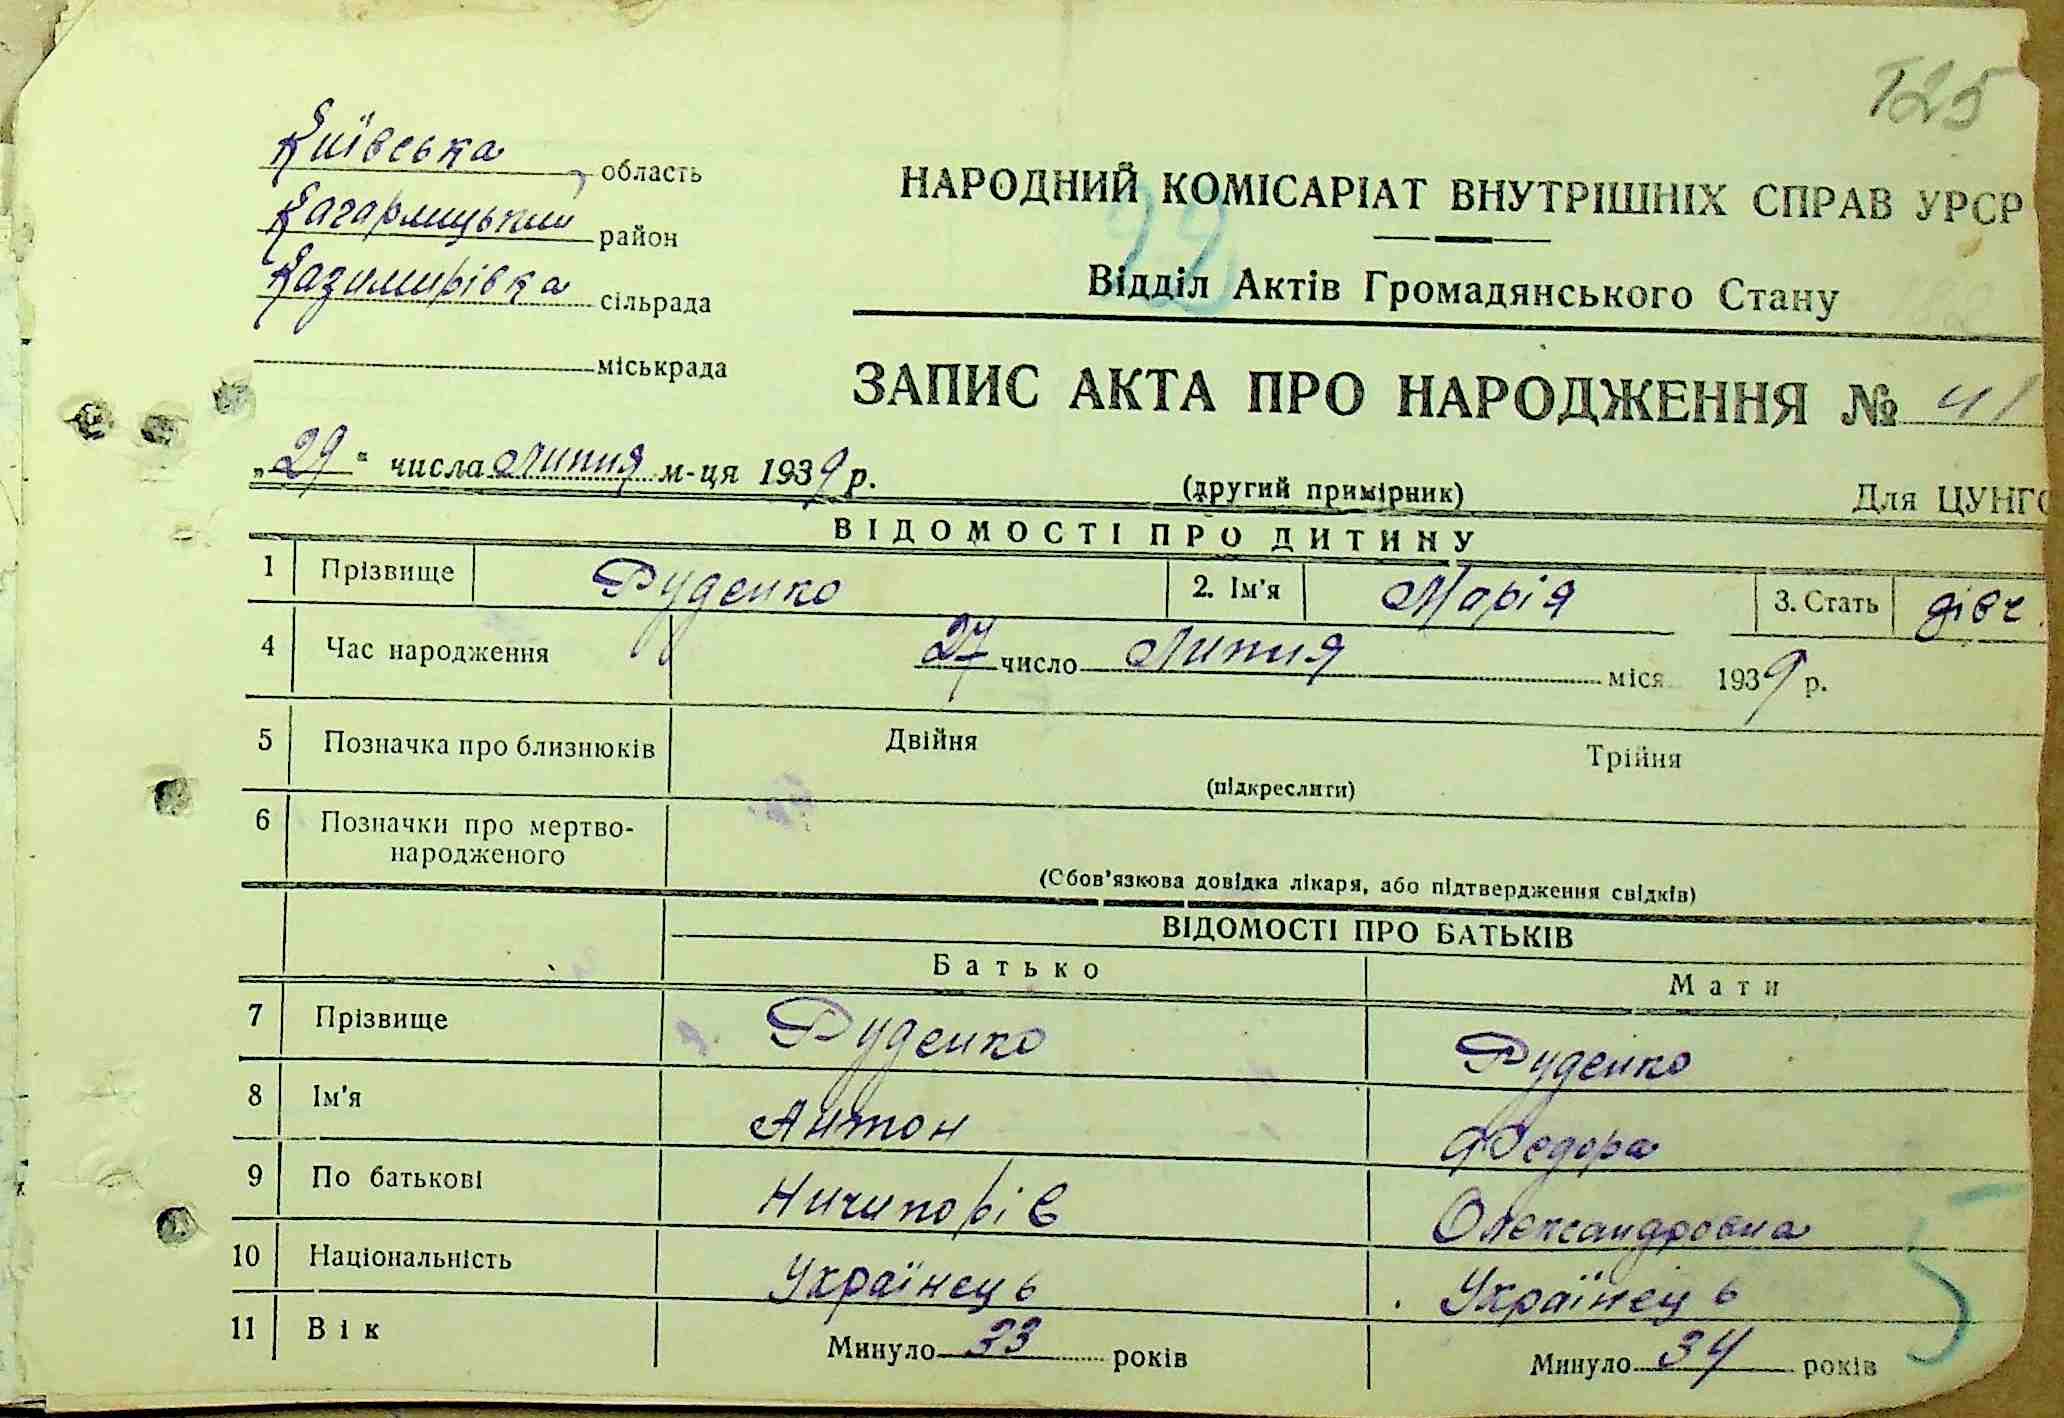 125
Київська область
Кагарлицький район
Казимирівка сільрада
міськрада
НАРОДНИЙ КОМІСАРІАТ ВНУТРІШНІХ СПРАВ УРСР
22
Відділ Актів Громадянського Стану
ЗАПИС АКТА ПРО НАРОДЖЕННЯ № 41
„29" числа липня м-ця 1939 р.
(другий примірник)
Для ЦУНГО
ВІДОМОСТІ ПРО ДИТИНУ
1 Прізвище Руденко 2. Ім'я Марія 3. Стать дівч.
4 Час народження 27 число липня міся 1939 р.
5 Позначка про близнюків Двійня Трійня
(підкреслити)
6 Позначки про мертво-
народженого
(Обов'язкова довідка лікаря, або підтвердження свідків)
ВІДОМОСТІ ПРО БАТЬКІВ
Батько Мати
7 Прізвище Руденко Руденко
8 Ім'я Антон Федора
9 По батькові Ничипорів Олександровна
10 Національність Українець Українець
11 Вік Минуло 33 років Минуло 34 років
5